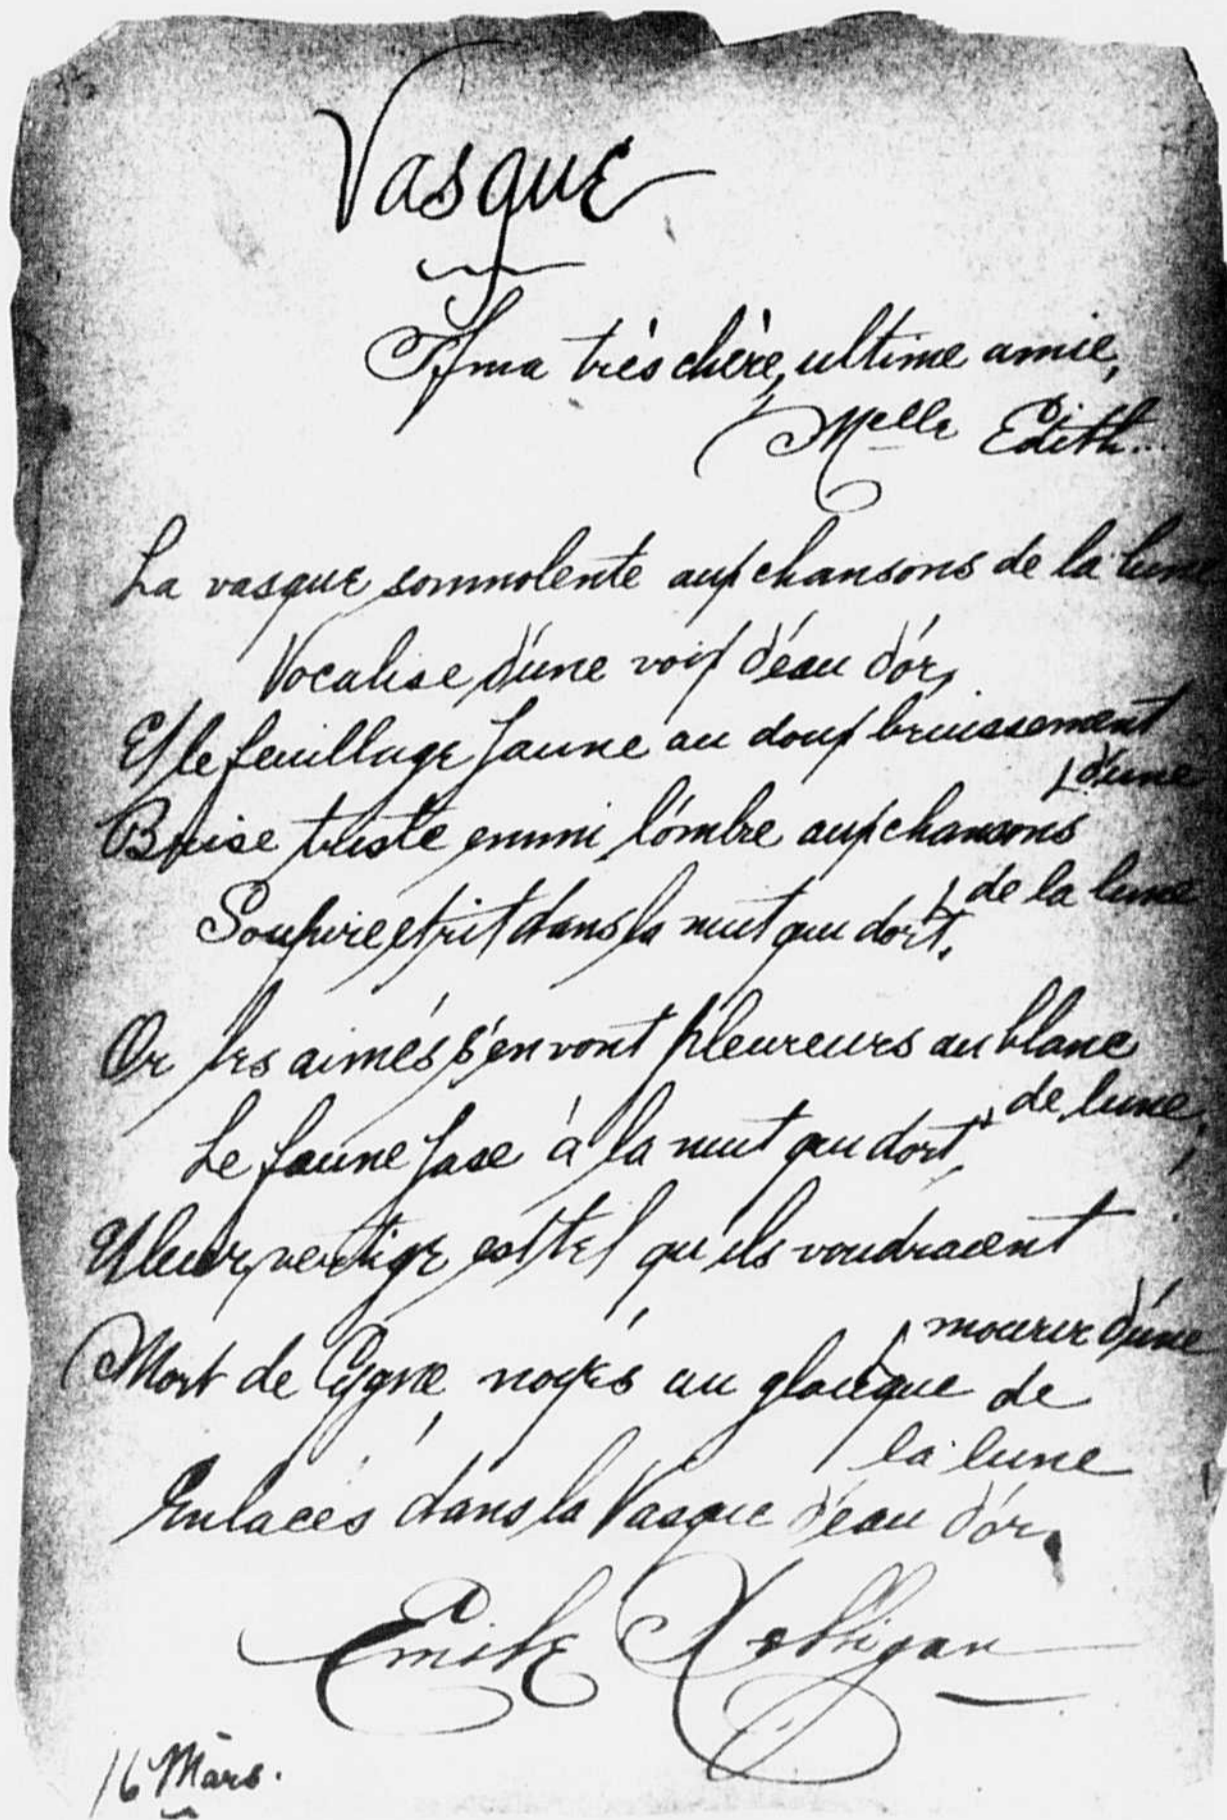 Vasque
A ma très chère, ultime amie,
Melle Edith...
La vasque somnolente aux chansons de la lune
Vocalise d'une voix d'eau d'or,
Et le feuillage jaune au doux bruissement
d'une
Brise triste emmi l'ombre aux chansons
de la lune
Soupire et rit dans la nuit qui dort.
Or les aimés s'en vont pleureurs au blanc
de lune,
Le faune jase à la nuit qui dort,
Et leur vertige est tel qu'ils voudraient
mourir d'une
Mort de Cygne, noyés au glauque de
la lune
Enlacés dans la Vasque d'eau d'or.
Emile Nelligan
16 Mars.